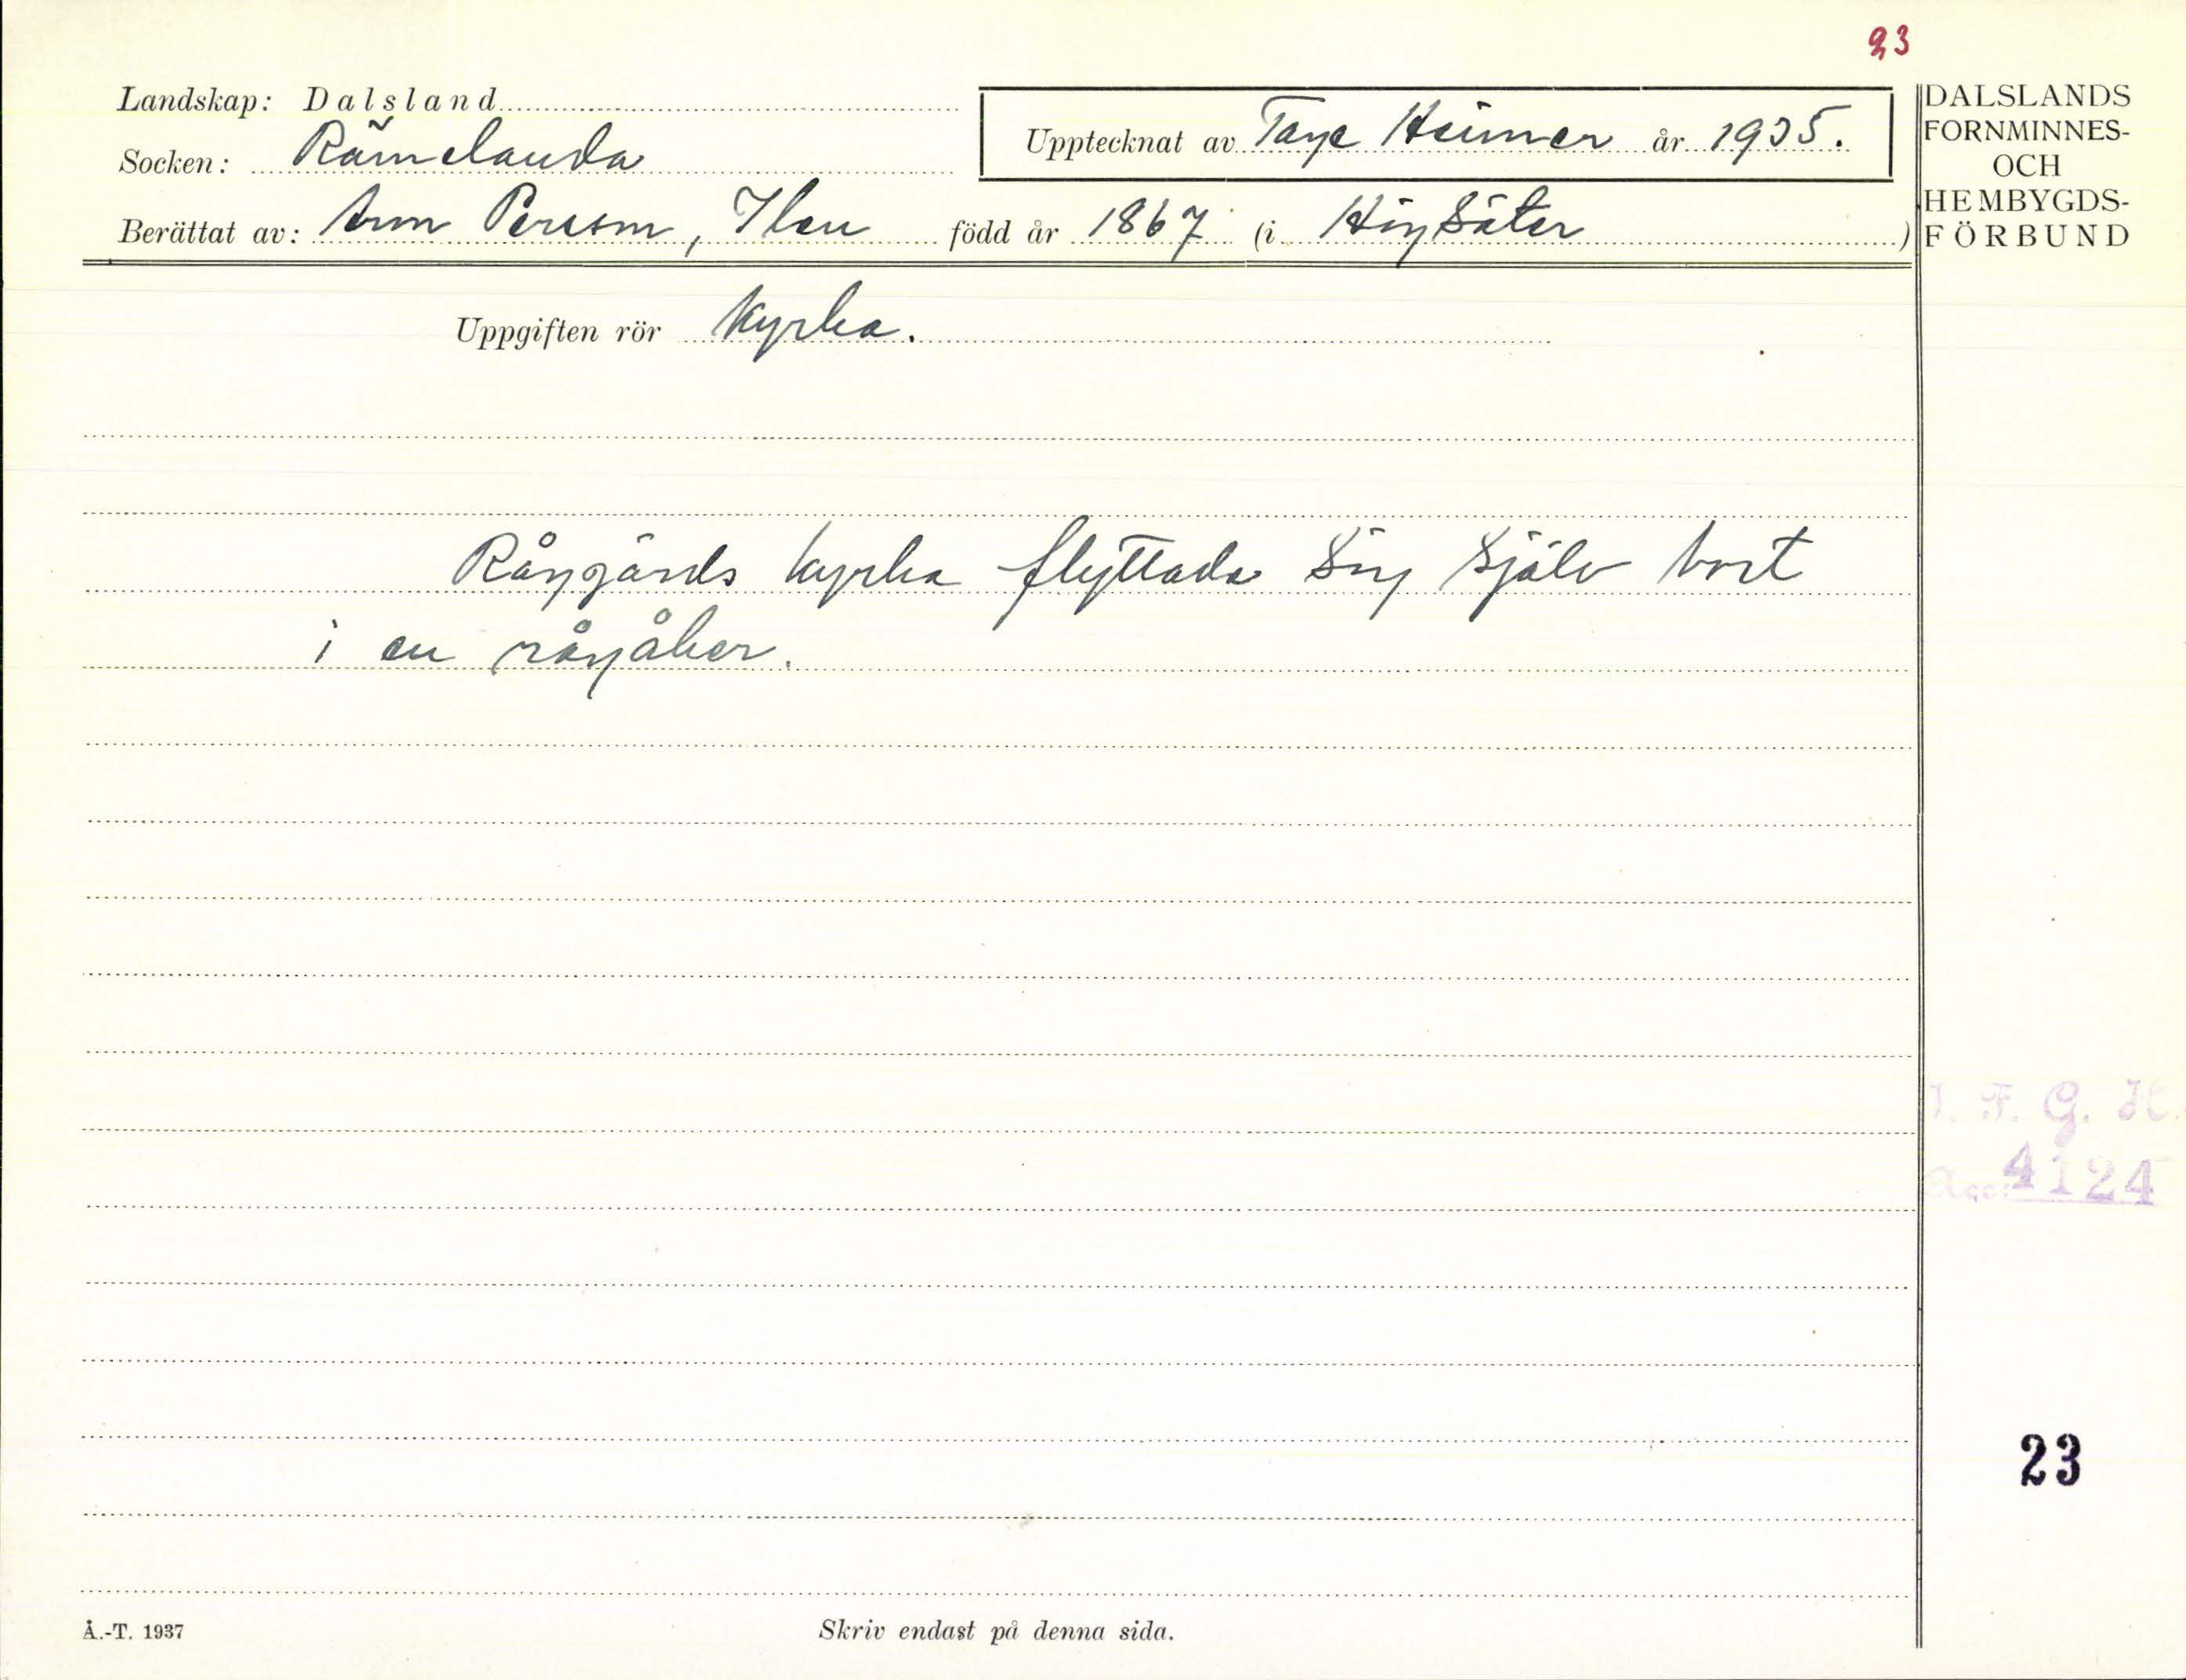 23
Landskap: Dalsland
DALSLANDS
FORNMINNES-
OCH
HEMBYGDS-
FÖRBUND
Upptecknat av Tage Heimer år 1935.
Socken: Rämelanda
Berättat av: Arm Person, Ilen född år 1867 (i Högsäter)
Uppgiften rör kyrka.
Råggärds kyrka flyttade sig själv bort
i en rågåker.
I. F. G. H.
Acc: 4124
23
Å.-T. 1937
Skriv endast på denna sida.